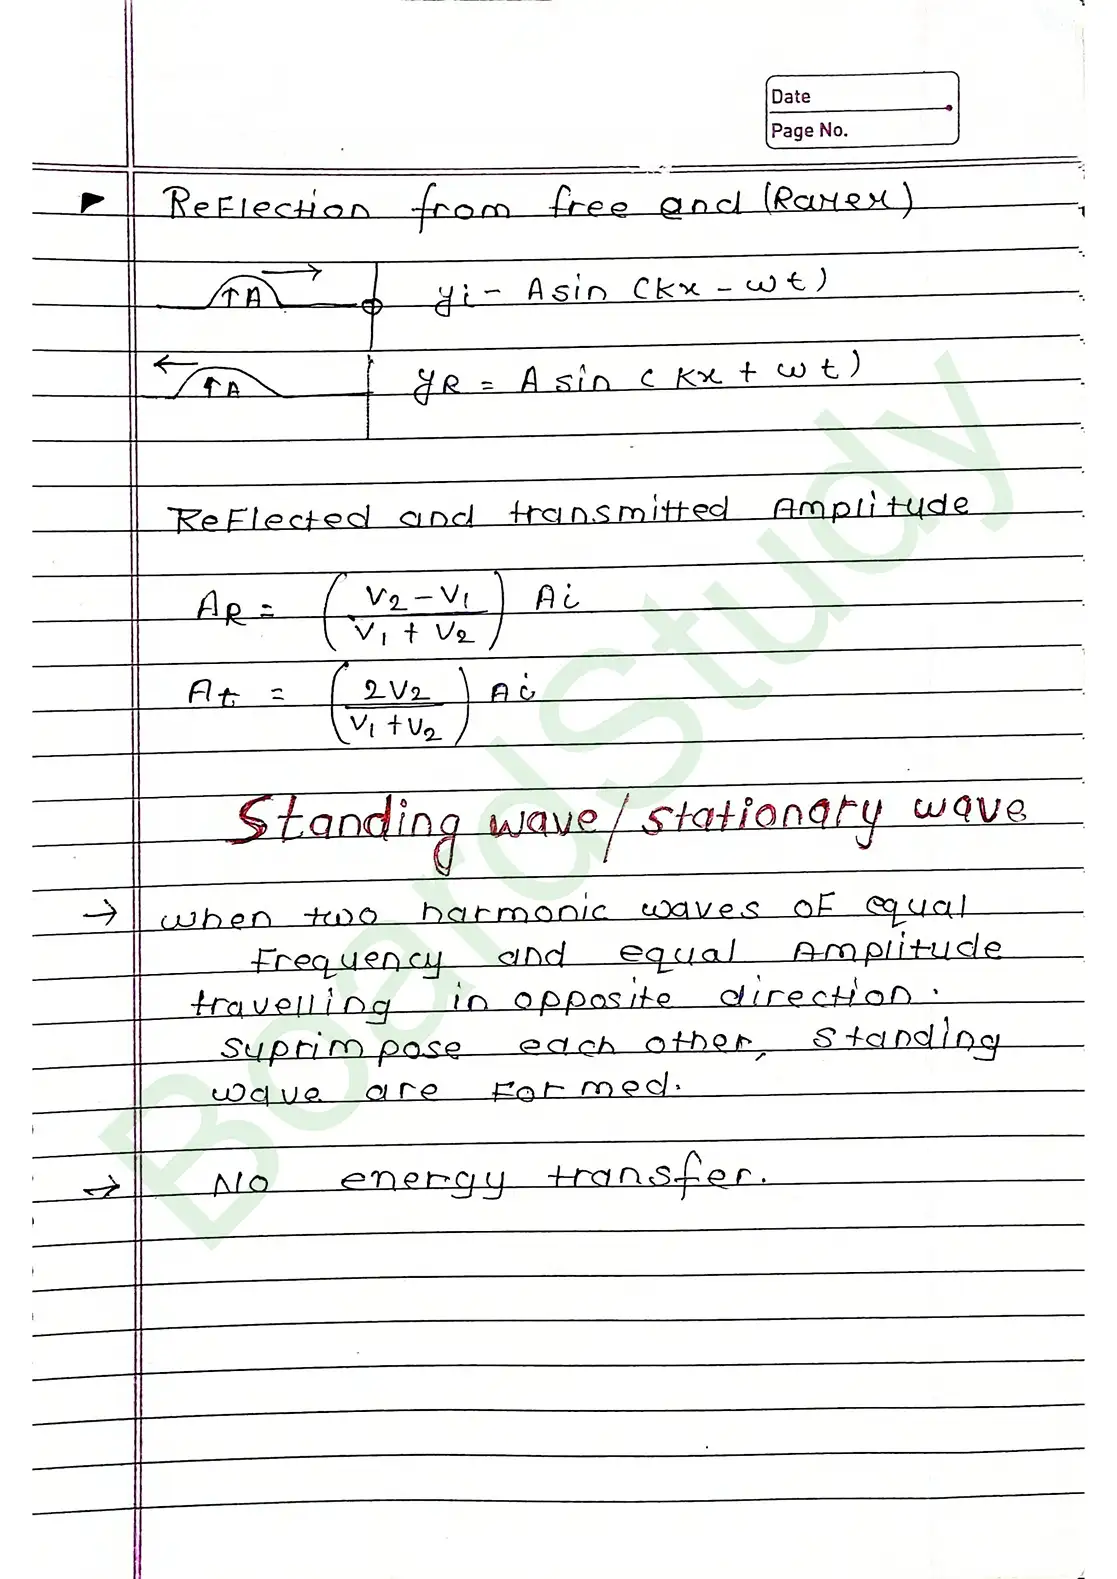 Date
Page No.
Reflection from free end (Rarer)
A
yi - A sin (kx - wt)
A
yR = A sin (kx + wt)
Reflected and transmitted Amplitude
AR = (V2 - V1 / V1 + V2) Ai
At = (2V2 / V1 + V2) Ai
Standing wave / stationary wave
→ when two harmonic waves of equal
frequency and equal Amplitude
travelling in opposite direction.
suprimpose each other, standing
wave are formed.
→ No energy transfer.
BoardStudy